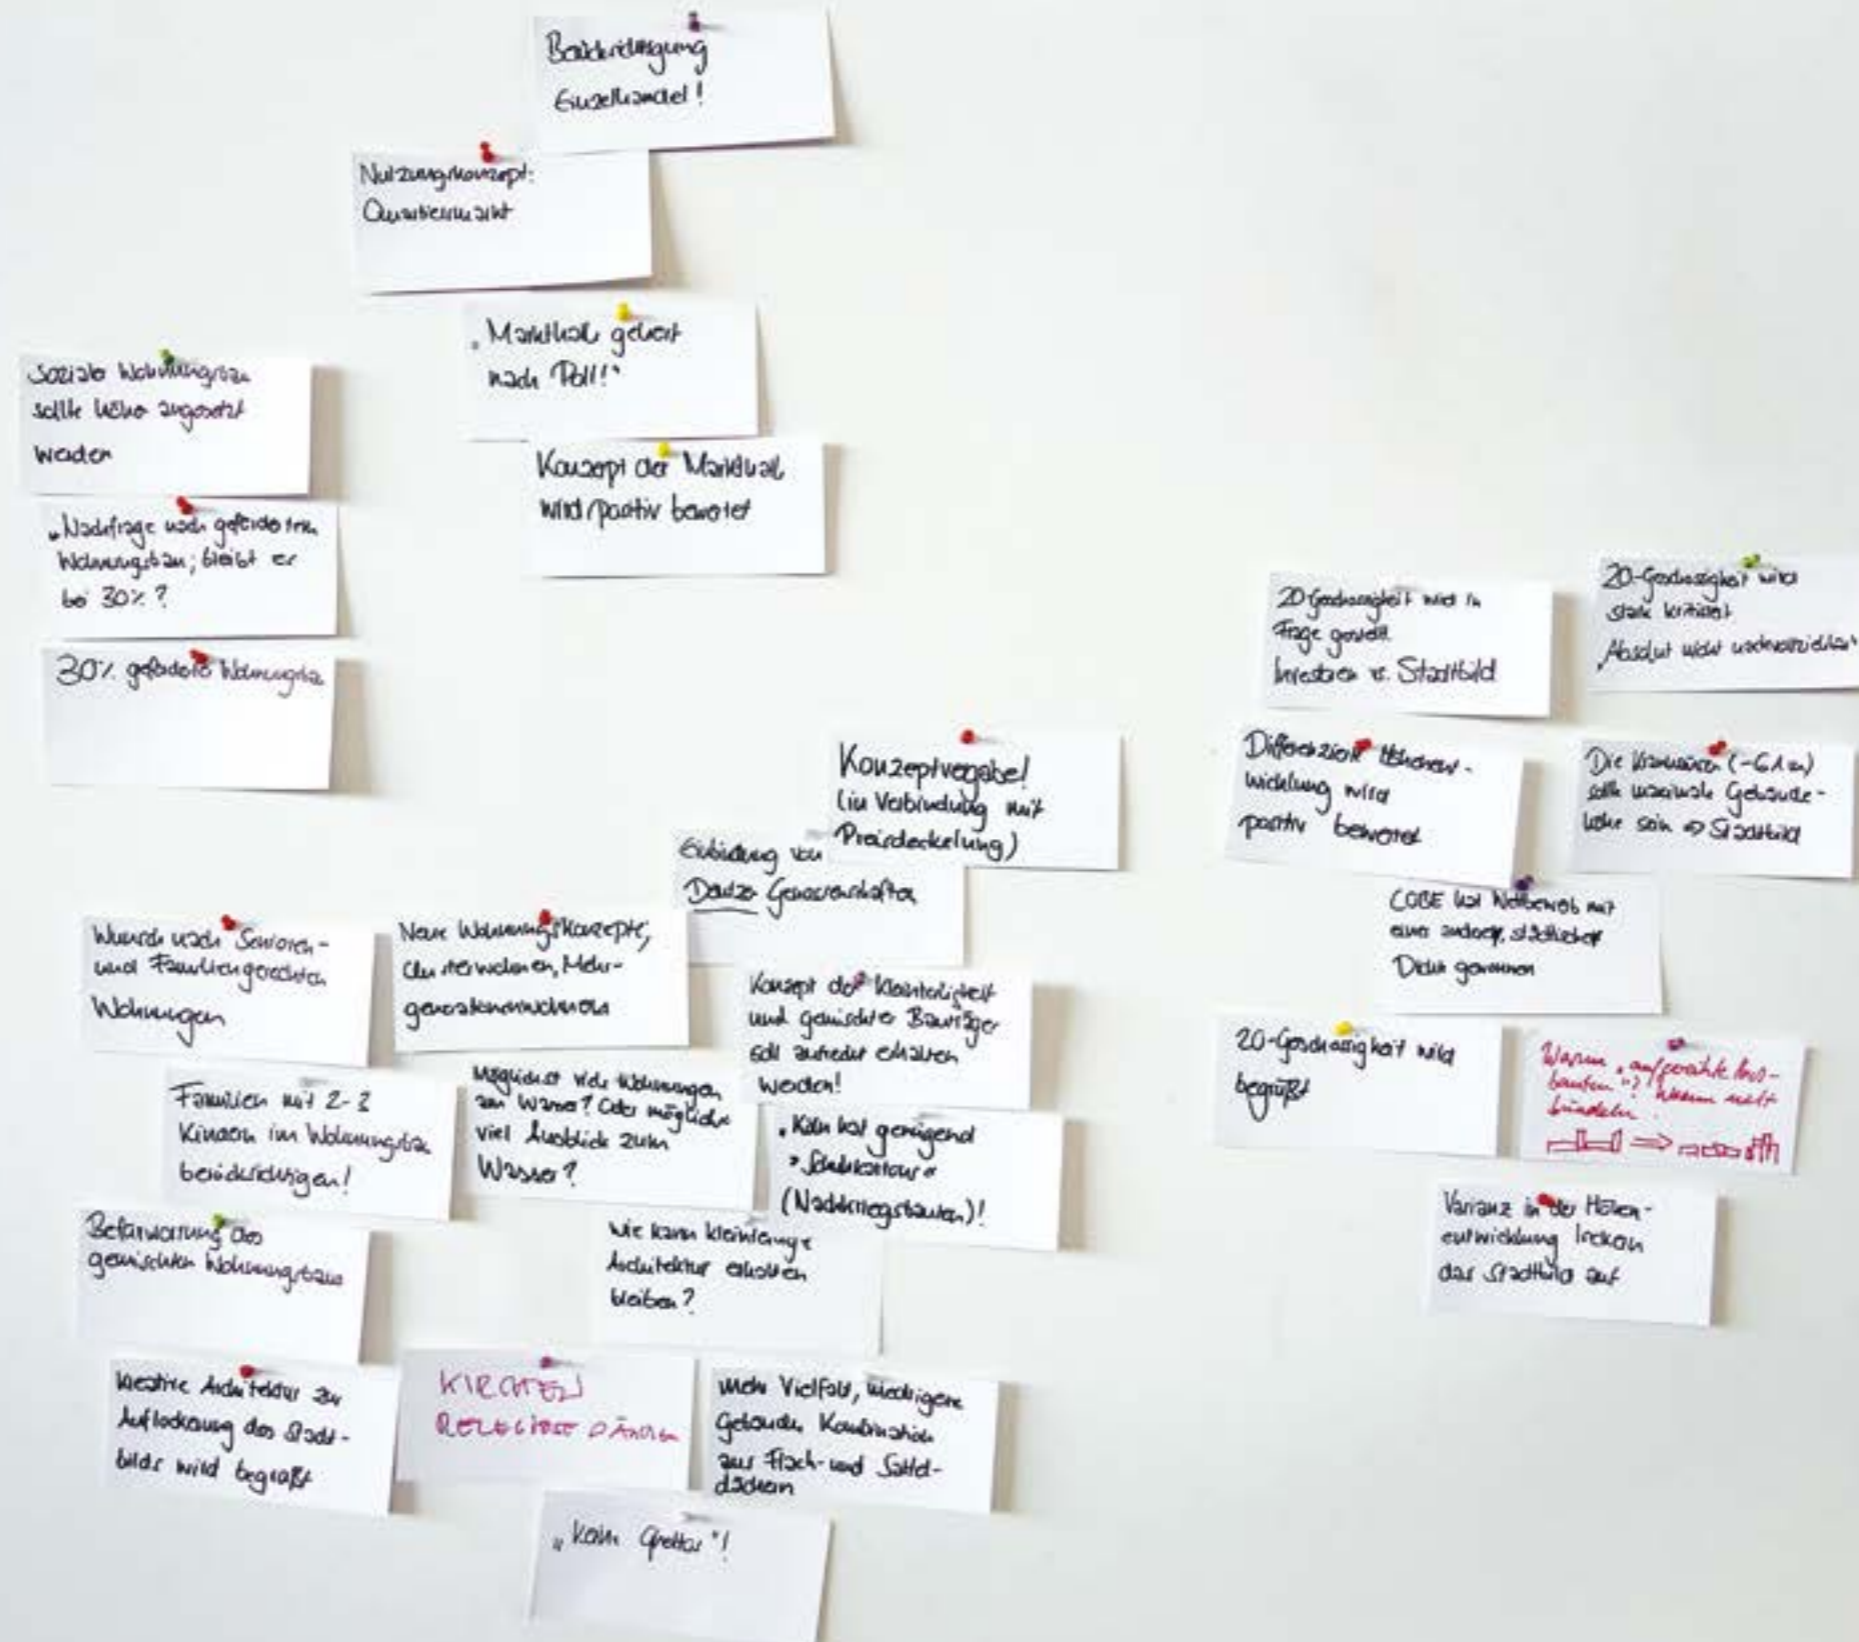 Berücksichtigung
Einzelhandel!
Nutzungskonzept:
Quartiersmarkt
„Markthalle gehört
nach Poll!“
Konzept der Markthalle
wird positiv bewertet
Sozialer Wohnungsbau
sollte höher angesetzt
werden
„Nachfrage nach gefördertem
Wohnungsbau; bleibt er
bei 30%?
30% geförderter Wohnungsbau
Konzeptvergabe!
(in Verbindung mit
Preisdeckelung)
Einbindung von
Deutzer Genossenschaften
Wunsch nach Senioren-
und Familiengerechten
Wohnungen
Neue Wohnungskonzepte,
Clusterwohnen, Mehr-
generationenwohnen
Konzept der Kleinteiligkeit
und gemischter Bauträger
soll aufrecht erhalten
werden!
Familien mit 2-3
Kindern im Wohnungsbau
berücksichtigen!
Möglichst viele Wohnungen
am Wasser? Oder möglichst
viel Ausblick zum
Wasser?
„Köln hat genügend
"Schuhkartons"
(Nachkriegsbauten)!
Befürwortung des
gemischten Wohnungsbaus
Wie kann kleinteilige
Architektur erhalten
bleiben?
Kreative Architektur zur
Auflockerung des Stadt-
bilds wird begrüßt
KIRCHEN
RELIGIÖSE
Mehr Vielfalt, niedrigere
Gebäude, Kombination
aus Flach- und Sattel-
dächern
„Kein Ghetto“!
20-Geschossigkeit wird in
Frage gestellt.
Investoren vs. Stadtbild
20-Geschossigkeit wird
stark kritisiert
„Absolut nicht nachvollziehbar“
Differenzierte Höhenent-
wicklung wird
positiv bewertet
Die Kranhäuser (-61m)
sollte maximale Gebäude-
höhe sein => Stadtbild
COBE hat Wettbewerb mit
einer anderen, städtischen
Dichte gewonnen
20-Geschossigkeit wird
begrüßt
Warum „aufgereihte Hoch-
bauten“? Warum nicht
bündeln
Varianz in der Höhen-
entwicklung lockern
das Stadtbild auf